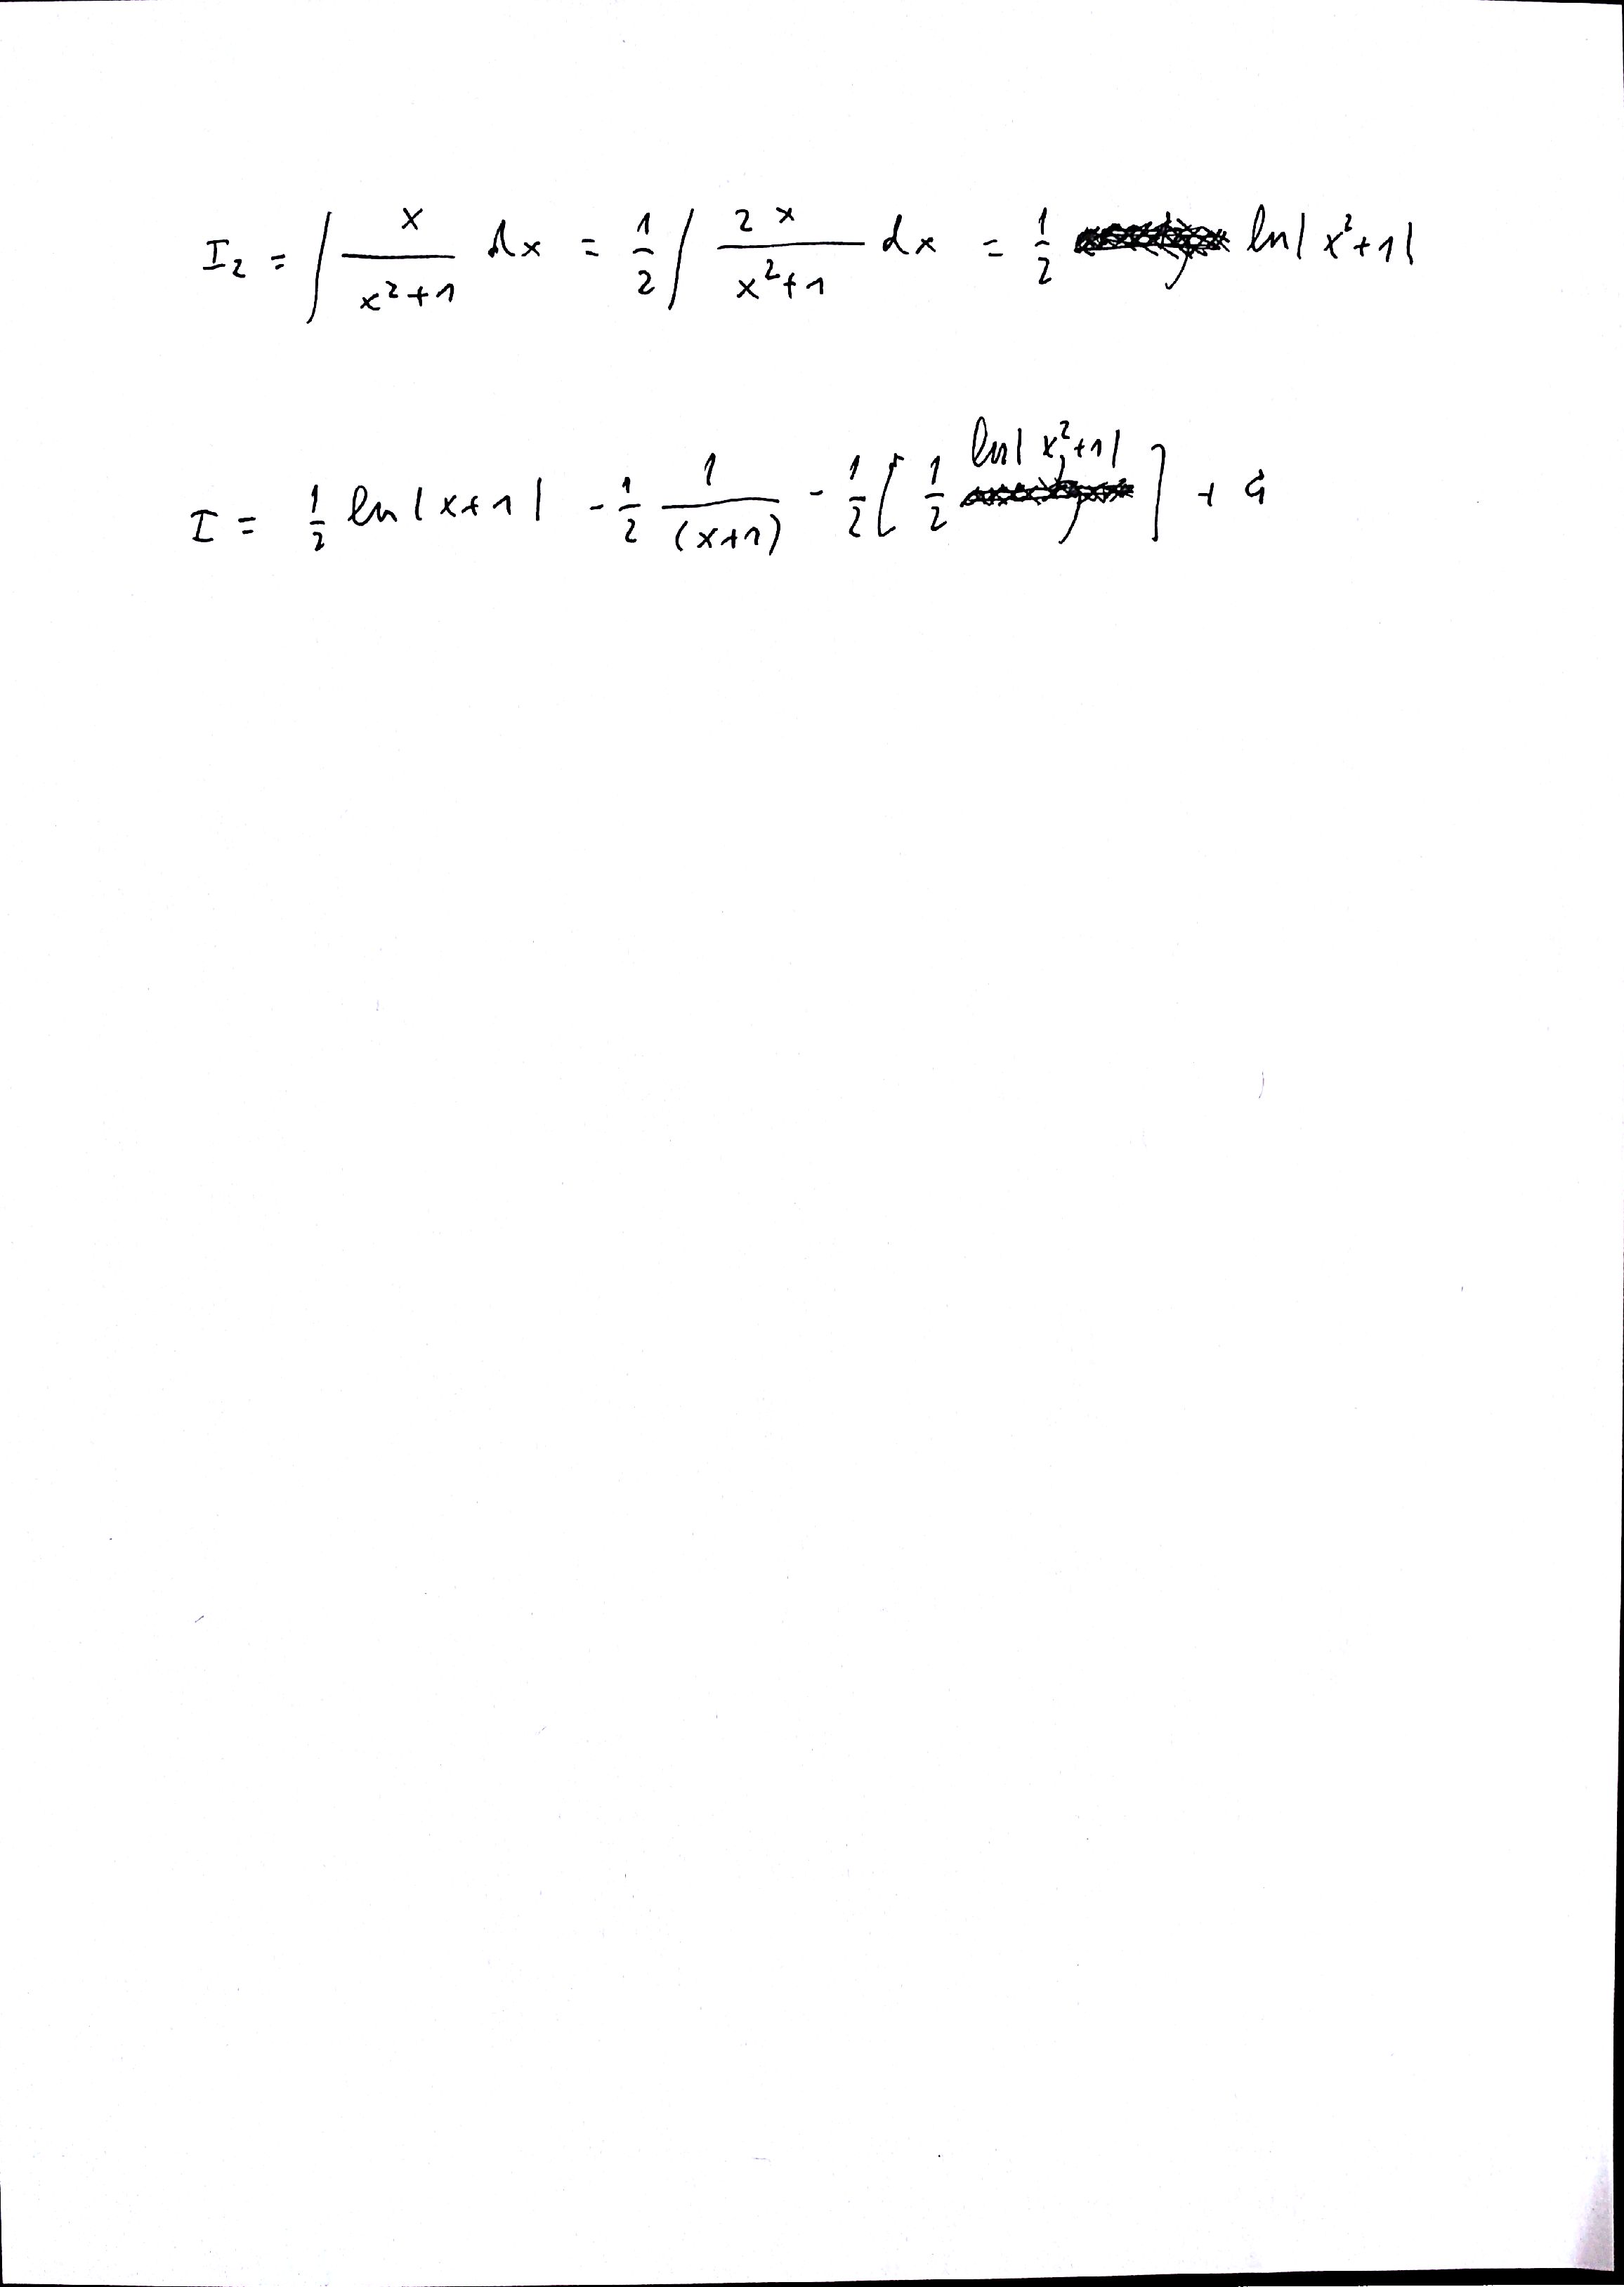 I₂ = ∫ x/(x²+1) dx = 1/2 ∫ 2x/(x²+1) dx = 1/2 ln|x²+1|
I = 1/2 ln|x+1| - 1/2 1/(x+1) - 1/2 [1/2 ln|x²+1|] +